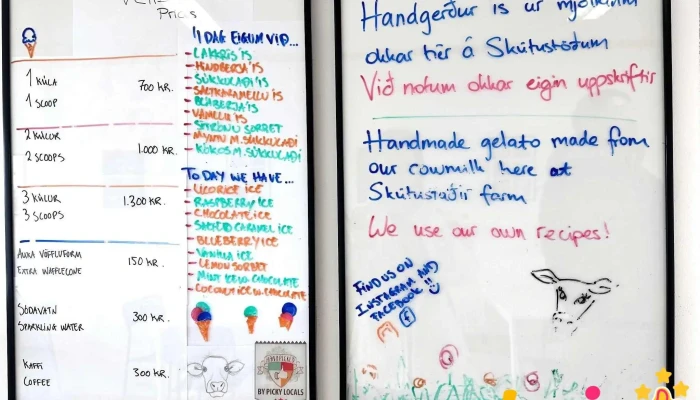 Prices
1 KÚLA
1 SCOOP
700 KR.
2 KÚLUR
2 SCOOPS
1.000 KR.
3 KÚLUR
3 SCOOPS
1.300 KR.
AUKA VÖFFLUFORM
EXTRA WAFFLECONE
150 KR.
SÓDAVATN
SPARKLING WATER
300 KR.
KAFFI
COFFEE
300 KR.
Í DAG EIGUM VIÐ...
- LAKKRÍS ÍS
- HINDBERJA ÍS
- SÚKKULAÐI ÍS
- SALTKARAMELLU ÍS
- BLÁBERJA ÍS
- VANILLU ÍS
- SÍTRÓNU SORBET
- MYNTU M. SÚKKULAÐI
- KÓKOS M. SÚKKULAÐI
TODAY WE HAVE...
- LICORICE ICE
- RASPBERRY ICE
- CHOCOLATE ICE
- SALTED CARAMEL ICE
- BLUEBERRY ICE
- VANILLA ICE
- LEMON SORBET
- MINT ICE W. CHOCOLATE
- COCONUT ICE W. CHOCOLATE
BY PICKY LOCALS
Handgerður ís úr mjólkinni
okkar hér á Skútustöðum
Við notum okkar eigin uppskriftir
Handmade gelato made from
our cowmilk here at
Skútustaðir farm
We use our own recipes!
FIND US ON
INSTAGRAM AND
FACEBOOK!!